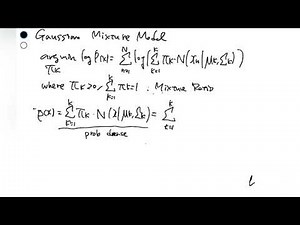 Gaussian Mixture Model
argmin log P(x) = Σ_{n=1}^{N} log( Σ_{k=1}^{K} πk · N(xn | μk, Σk) )
πk
where πk ≥ 0, Σ_{k=1}^{K} πk = 1 : Mixture Ratio
p(x) = Σ_{k=1}^{K} πk · N(x | μk, Σk) = Σ^{K}
prob